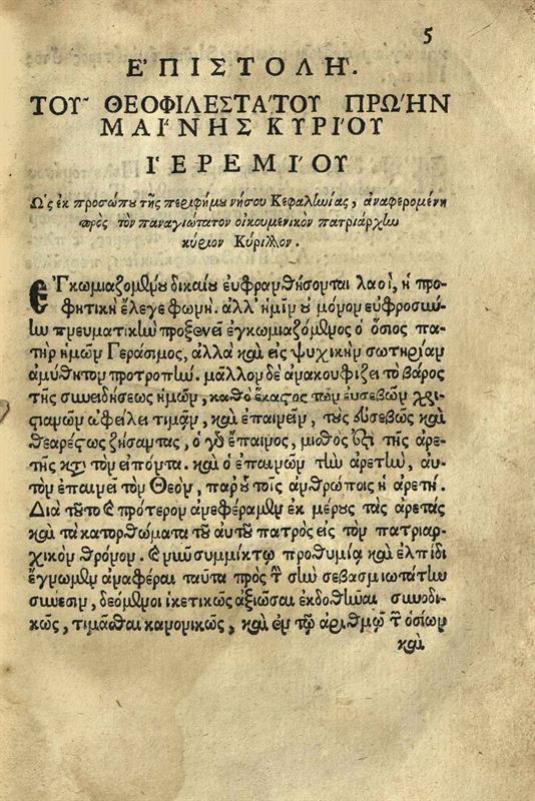 5
Ε᾿ΠΙΣΤΟΛΗ΄.
ΤΟΥ῀ ΘΕΟΦΙΛΕΣΤΑ΄ΤΟΥ ΠΡΩ΄ΗΝ
ΜΑΙ΄ΝΗΣ ΚΥΡΙ΄ΟΥ
Ι᾿ΕΡΕΜΙ΄ΟΥ
Ὡς ἐκ προσώπου τῆς περιφήμου νήσου Κεφαλωνίας, ἀναφερομένη
πρὸς τὸν παναγιώτατον οἰκουμενικὸν πατριάρχην
κύριον Κύριλλον.
Ἐγκωμιαζομένου δικαίου εὐφρανθήσονται λαοὶ, ἡ προ-
φητικὴ ἔλεγε φωνή. ἀλλ' ἡμῖν οὐ μόνον εὐφροσύν-
ην πνευματικὴν προξενεῖ ἐγκωμιαζόμενος ὁ ὅσιος πα-
τὴρ ἡμῶν Γεράσιμος, ἀλλὰ καὶ εἰς ψυχικὴν σωτηρίαν
ἀμύθητον προτροπήν. μᾶλλον δὲ ἀνακουφίζει τὸ βάρος
τῆς συνειδήσεως ἡμῶν, καθὸ ἕκαστος τῶν εὐσεβῶν χρι-
στιανῶν ὠφείλει τιμᾷν, καὶ ἐπαινεῖν, τοὺς εὐσεβῶς καὶ
θεαρέστως ζήσαντας, ὁ γὰρ ἔπαινος, μισθός ἐστι τῆς ἀρε-
τῆς κατὰ τὸν εἰπόντα. καὶ ὁ ἐπαινῶν τὴν ἀρετὴν, αὐ-
τὸν ἐπαινεῖ τὸν Θεὸν, παρ' οὗ τοῖς ἀνθρώποις ἡ ἀρετή.
Διὰ τοῦτο καὶ πρότερον ἀνεφέραμεν ἐκ μέρους τὰς ἀρετὰς
καὶ τὰ κατορθώματα τοῦ αὐτοῦ πατρὸς εἰς τὸν πατριαρ-
χικὸν θρόνον. καὶ νῦν συμμίκτῳ προθυμίᾳ καὶ ἐλπίδι
ἔγνωμεν ἀναφέραι ταῦτα πρὸς τὴν σὴν σεβασμιωτάτην
σύνεσιν, δεόμενοι ἱκετικῶς ἀξιῶσαι ἐκδοθῆναι συνοδι-
κῶς, τιμᾶσθαι κανονικῶς, καὶ ἐν τῷ ἀριθμῷ τῶν ὁσίων
καὶ